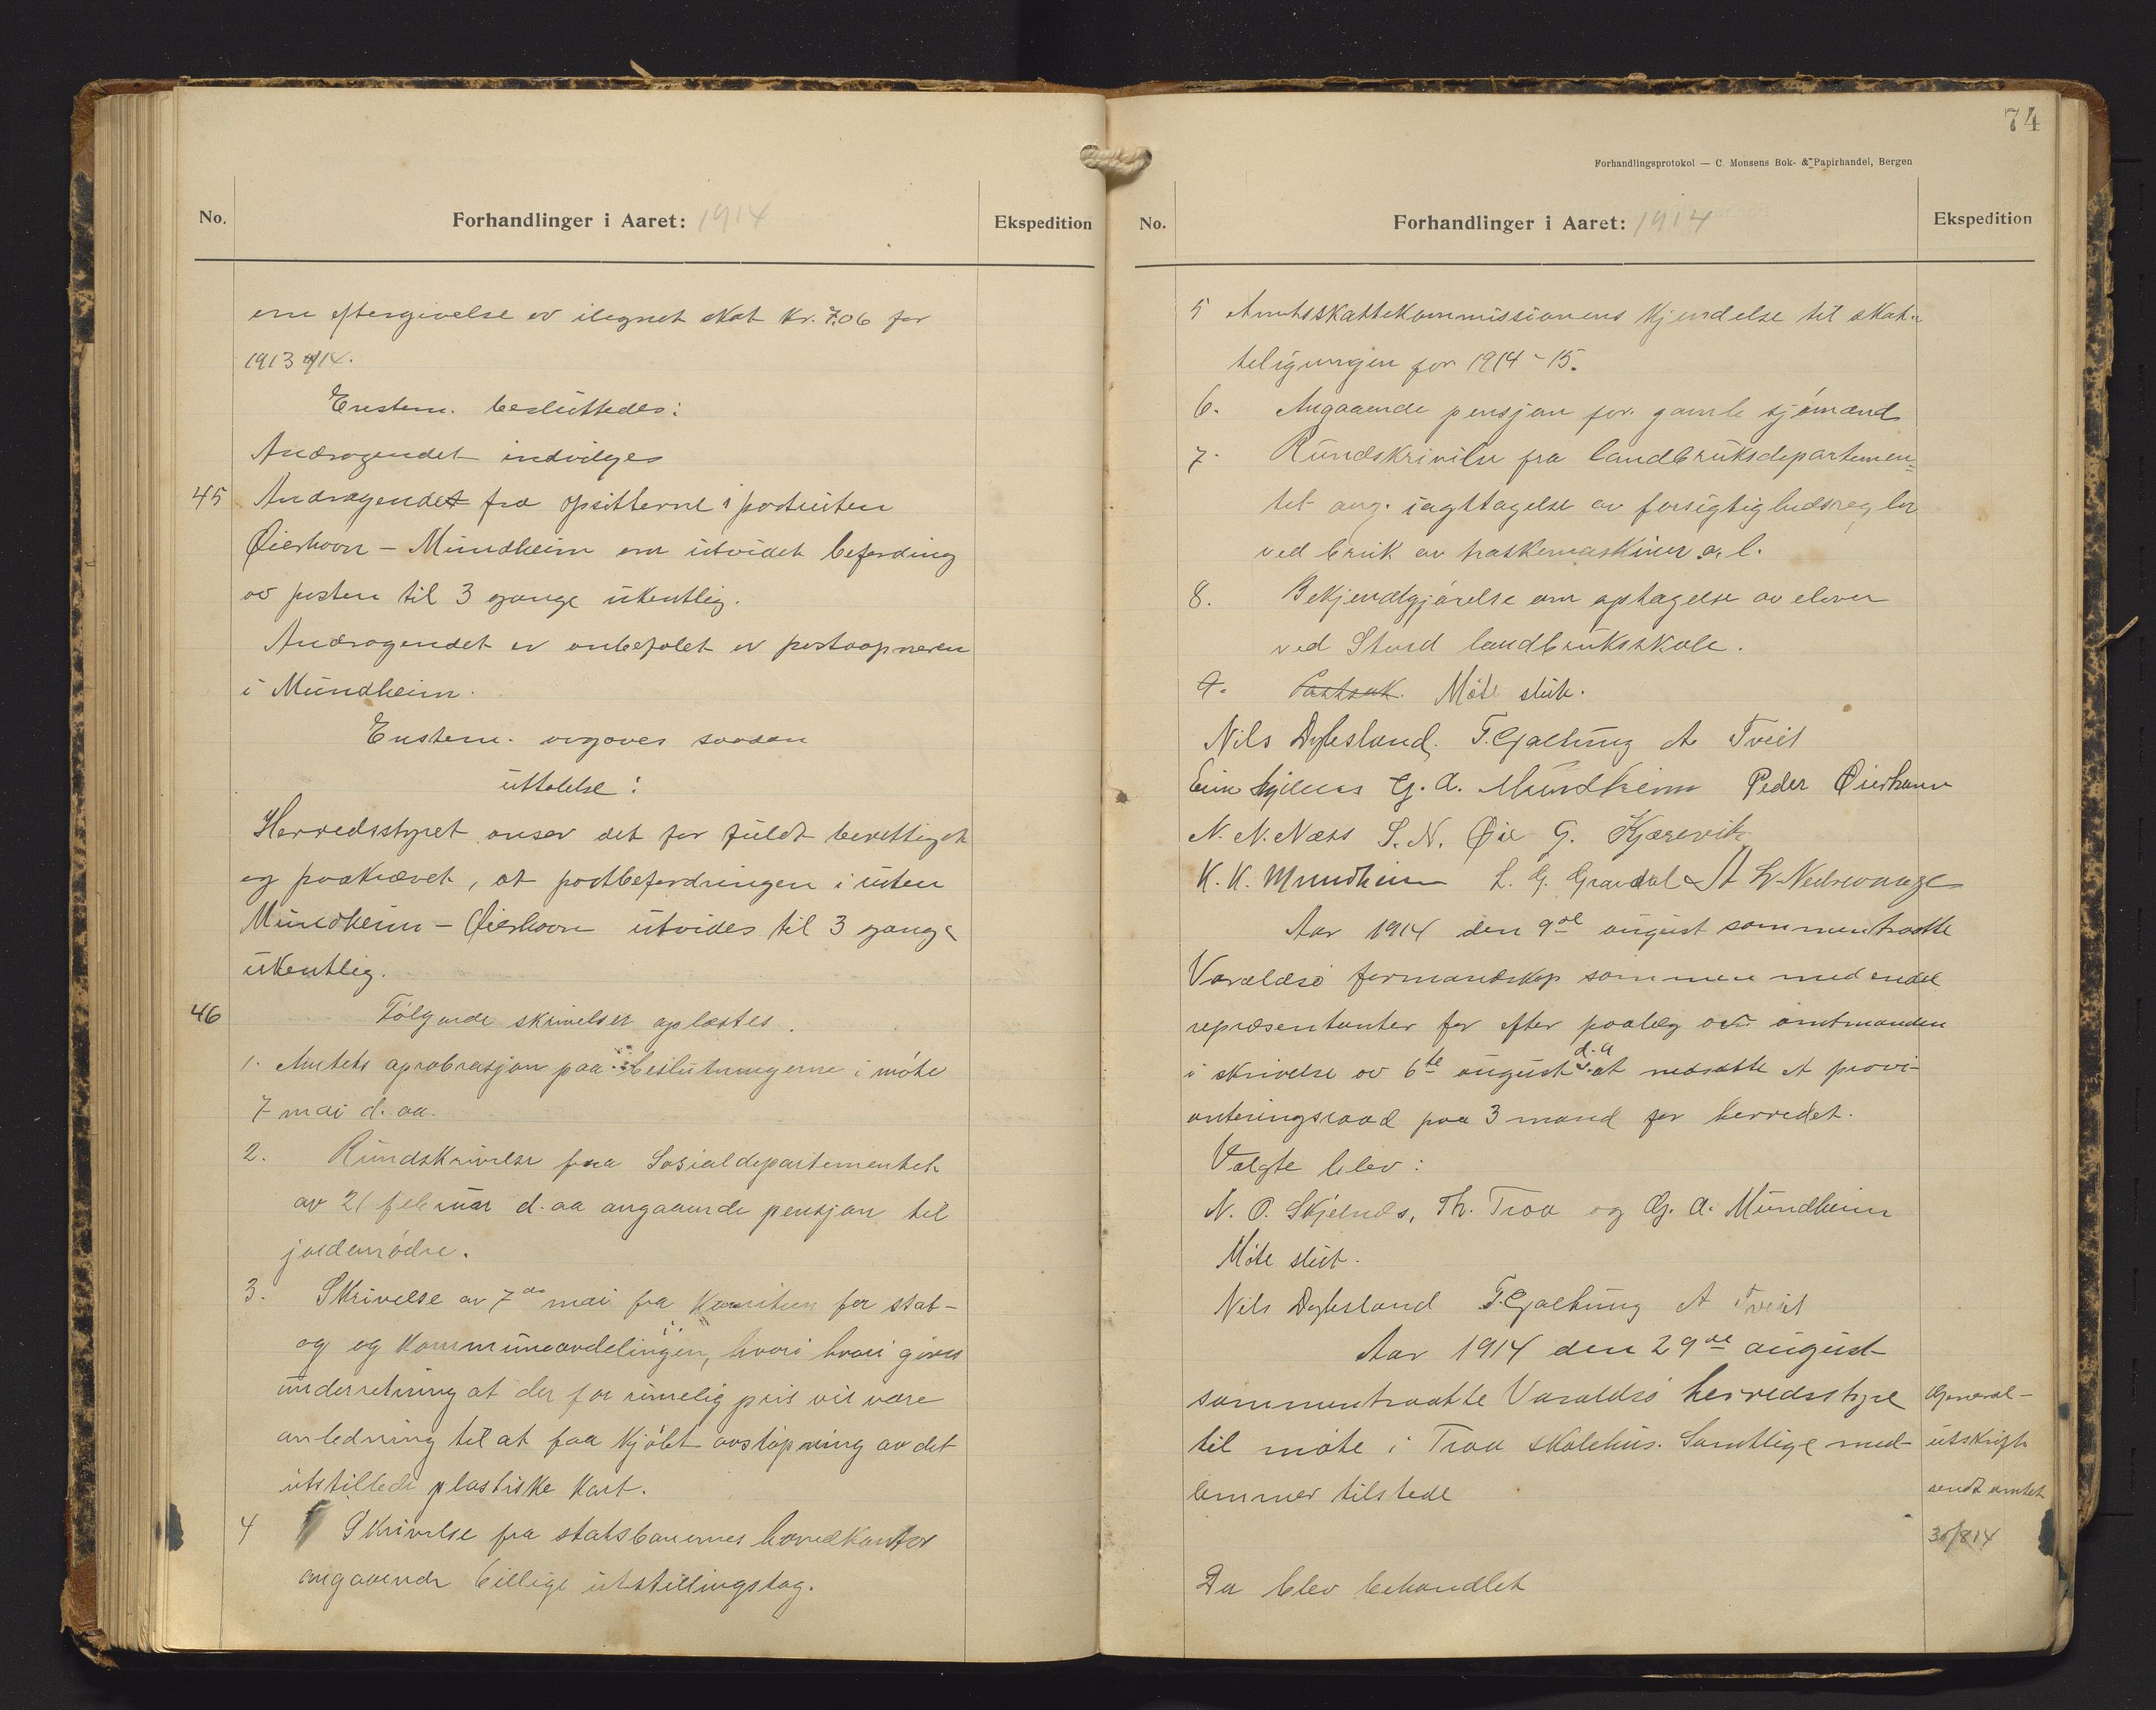 No.
Forhandlinger i Aaret: 1914
Ekspedition
om eftergivelse av ilegnet skat kr. 7.06 for
1913 og 14.
Enstem. besluttedes:
Andragendet indvilges
45 Andragendet fra opsitterne i postruten
Øierhavn - Mundheim om utvidet befording
av posten til 3 gange ukentlig.
Andragendet er anbefalet av postaapneren
i Mundheim.
Enstem. avgaves saadan
uttalelse:
Herredsstyret anser det for fuldt berettiget
og paakrævet, at postbefordringen i ruten
Mundheim - Øierhavn utvides til 3 gange
ukentlig.
46 Følgende skrivelser oplæstes.
1. Amtets aprobasjon paa beslutningerne i møte
7 mai d. aa.
2. Rundskrivelse fra Sosialdepartementet
av 21 februar d. aa angaaende pensjon til
jordemødre.
3. Skrivelse av 7de mai fra Komiteen for stat-
og og kommuneavdelingen, hvori hvori gives
underretning at der for rimelig pris vil være
anledning til at faa kjøbt avstøpning av det
utstillede plastiske kart.
4 Skrivelse fra statsbanernes hovedkontor
angaaende billige utstillingstog.
74
Forhandlingsprotokol — C. Monsens Bok- & Papirhandel, Bergen
No.
Forhandlinger i Aaret: 1914
Ekspedition
5 Amtsskattekommissionens kjendelse til skat-
teligningen for 1914-15.
6. Angaaende pensjon for gamle sjømænd
7. Rundskrivelse fra landbruksdepartemen-
tet ang. iagttagelse av forsigtighedsregler
ved bruk av træskemaskiner o. l.
8. Bekjendtgjørelse om optagelse av elever
ved Stord landbruksskole.
9. Postsak. Møte slut.
Nils Dybsland. T. Gjaltung A Tveit
G. A. Mundheim Peder Øierhavn
N. N. Næss S. N. Øie G. Kjærevik
K. K. Mundheim L. G. Gravdal A L Nedrevaage
Aar 1914 den 9de august sammentraatte
Varaldsø formandskap sammen med endel
repræsentanter for efter paalæg av amtmanden
i skrivelse av 6te august d. a at nedsætte et provi-
anteringsraad paa 3 mand for herredet.
Valgte blev:
N. O. Skjelnes, Th. Traa og G. A. Mundheim
Møte slut.
Nils Dybsland T. Gjaltung A Tveit
Aar 1914 den 29de august
sammentraatte Varaldsø herredsstyre
til møte i Traa skolehus. Samtlige med-
lemmer tilstede
General-
utskrift
sendt amtet
30/8 14
Da blev behandlet